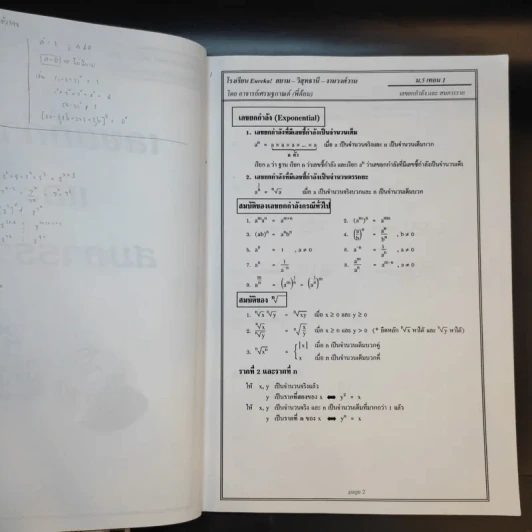 โรงเรียน Eureka! สยาม - วิสุทธานี - งามวงศ์วาน
ม.5 เทอม 1
โดย อาจารย์เศรษฐกานต์ (พี่ต้อม)
เลขยกกำลัง และ สมการราก
เลขยกกำลัง (Exponential)
1. เลขยกกำลังที่มีเลขชี้กำลังเป็นจำนวนเต็ม
aⁿ = a × a × a × ... × a เมื่อ a เป็นจำนวนจริงและ n เป็นจำนวนเต็มบวก
n ตัว
เรียก a ว่า ฐาน เรียก n ว่าเลขชี้กำลังและเรียก aⁿ ว่าเลขยกกำลังที่มีเลขชี้กำลังเป็นจำนวนเต็ม
2. เลขยกกำลังที่มีเลขชี้กำลังเป็นจำนวนตรรกยะ
a^(1/n) = ⁿ√a เมื่อ a เป็นจำนวนจริงบวกและ n เป็นจำนวนเต็มบวก
สมบัติของเลขยกกำลังกรณีทั่วไป
1. aᵐaⁿ = aᵐ⁺ⁿ 2. (aᵐ)ⁿ = aᵐⁿ
3. (ab)ⁿ = aⁿbⁿ 4. (a/b)ⁿ = aⁿ/bⁿ , b ≠ 0
5. a⁰ = 1 , a ≠ 0 6. a⁻ⁿ = 1/aⁿ , a ≠ 0
7. aⁿ = 1/a⁻ⁿ 8. aᵐ/aⁿ = aᵐ⁻ⁿ , a ≠ 0
9. a^(m/n) = (aᵐ)^(1/n) = (a^(1/n))ᵐ
สมบัติของ ⁿ√
1. ⁿ√x ⁿ√y = ⁿ√xy เมื่อ x ≥ 0 และ y ≥ 0
2. ⁿ√x / ⁿ√y = ⁿ√(x/y) เมื่อ x ≥ 0 และ y > 0 (* ยึดหลัก ⁿ√x หาได้ และ ⁿ√y หาได้)
3. ⁿ√xⁿ = { |x| เมื่อ n เป็นจำนวนเต็มบวกคู่
x เมื่อ n เป็นจำนวนเต็มบวกคี่
รากที่ 2 และรากที่ n
ให้ x, y เป็นจำนวนจริงแล้ว
y เป็นรากที่สองของ x ⟺ y² = x
ให้ x, y เป็นจำนวนจริง และ n เป็นจำนวนเต็มที่มากกว่า 1 แล้ว
y เป็นรากที่ n ของ x ⟺ yⁿ = x
page 2